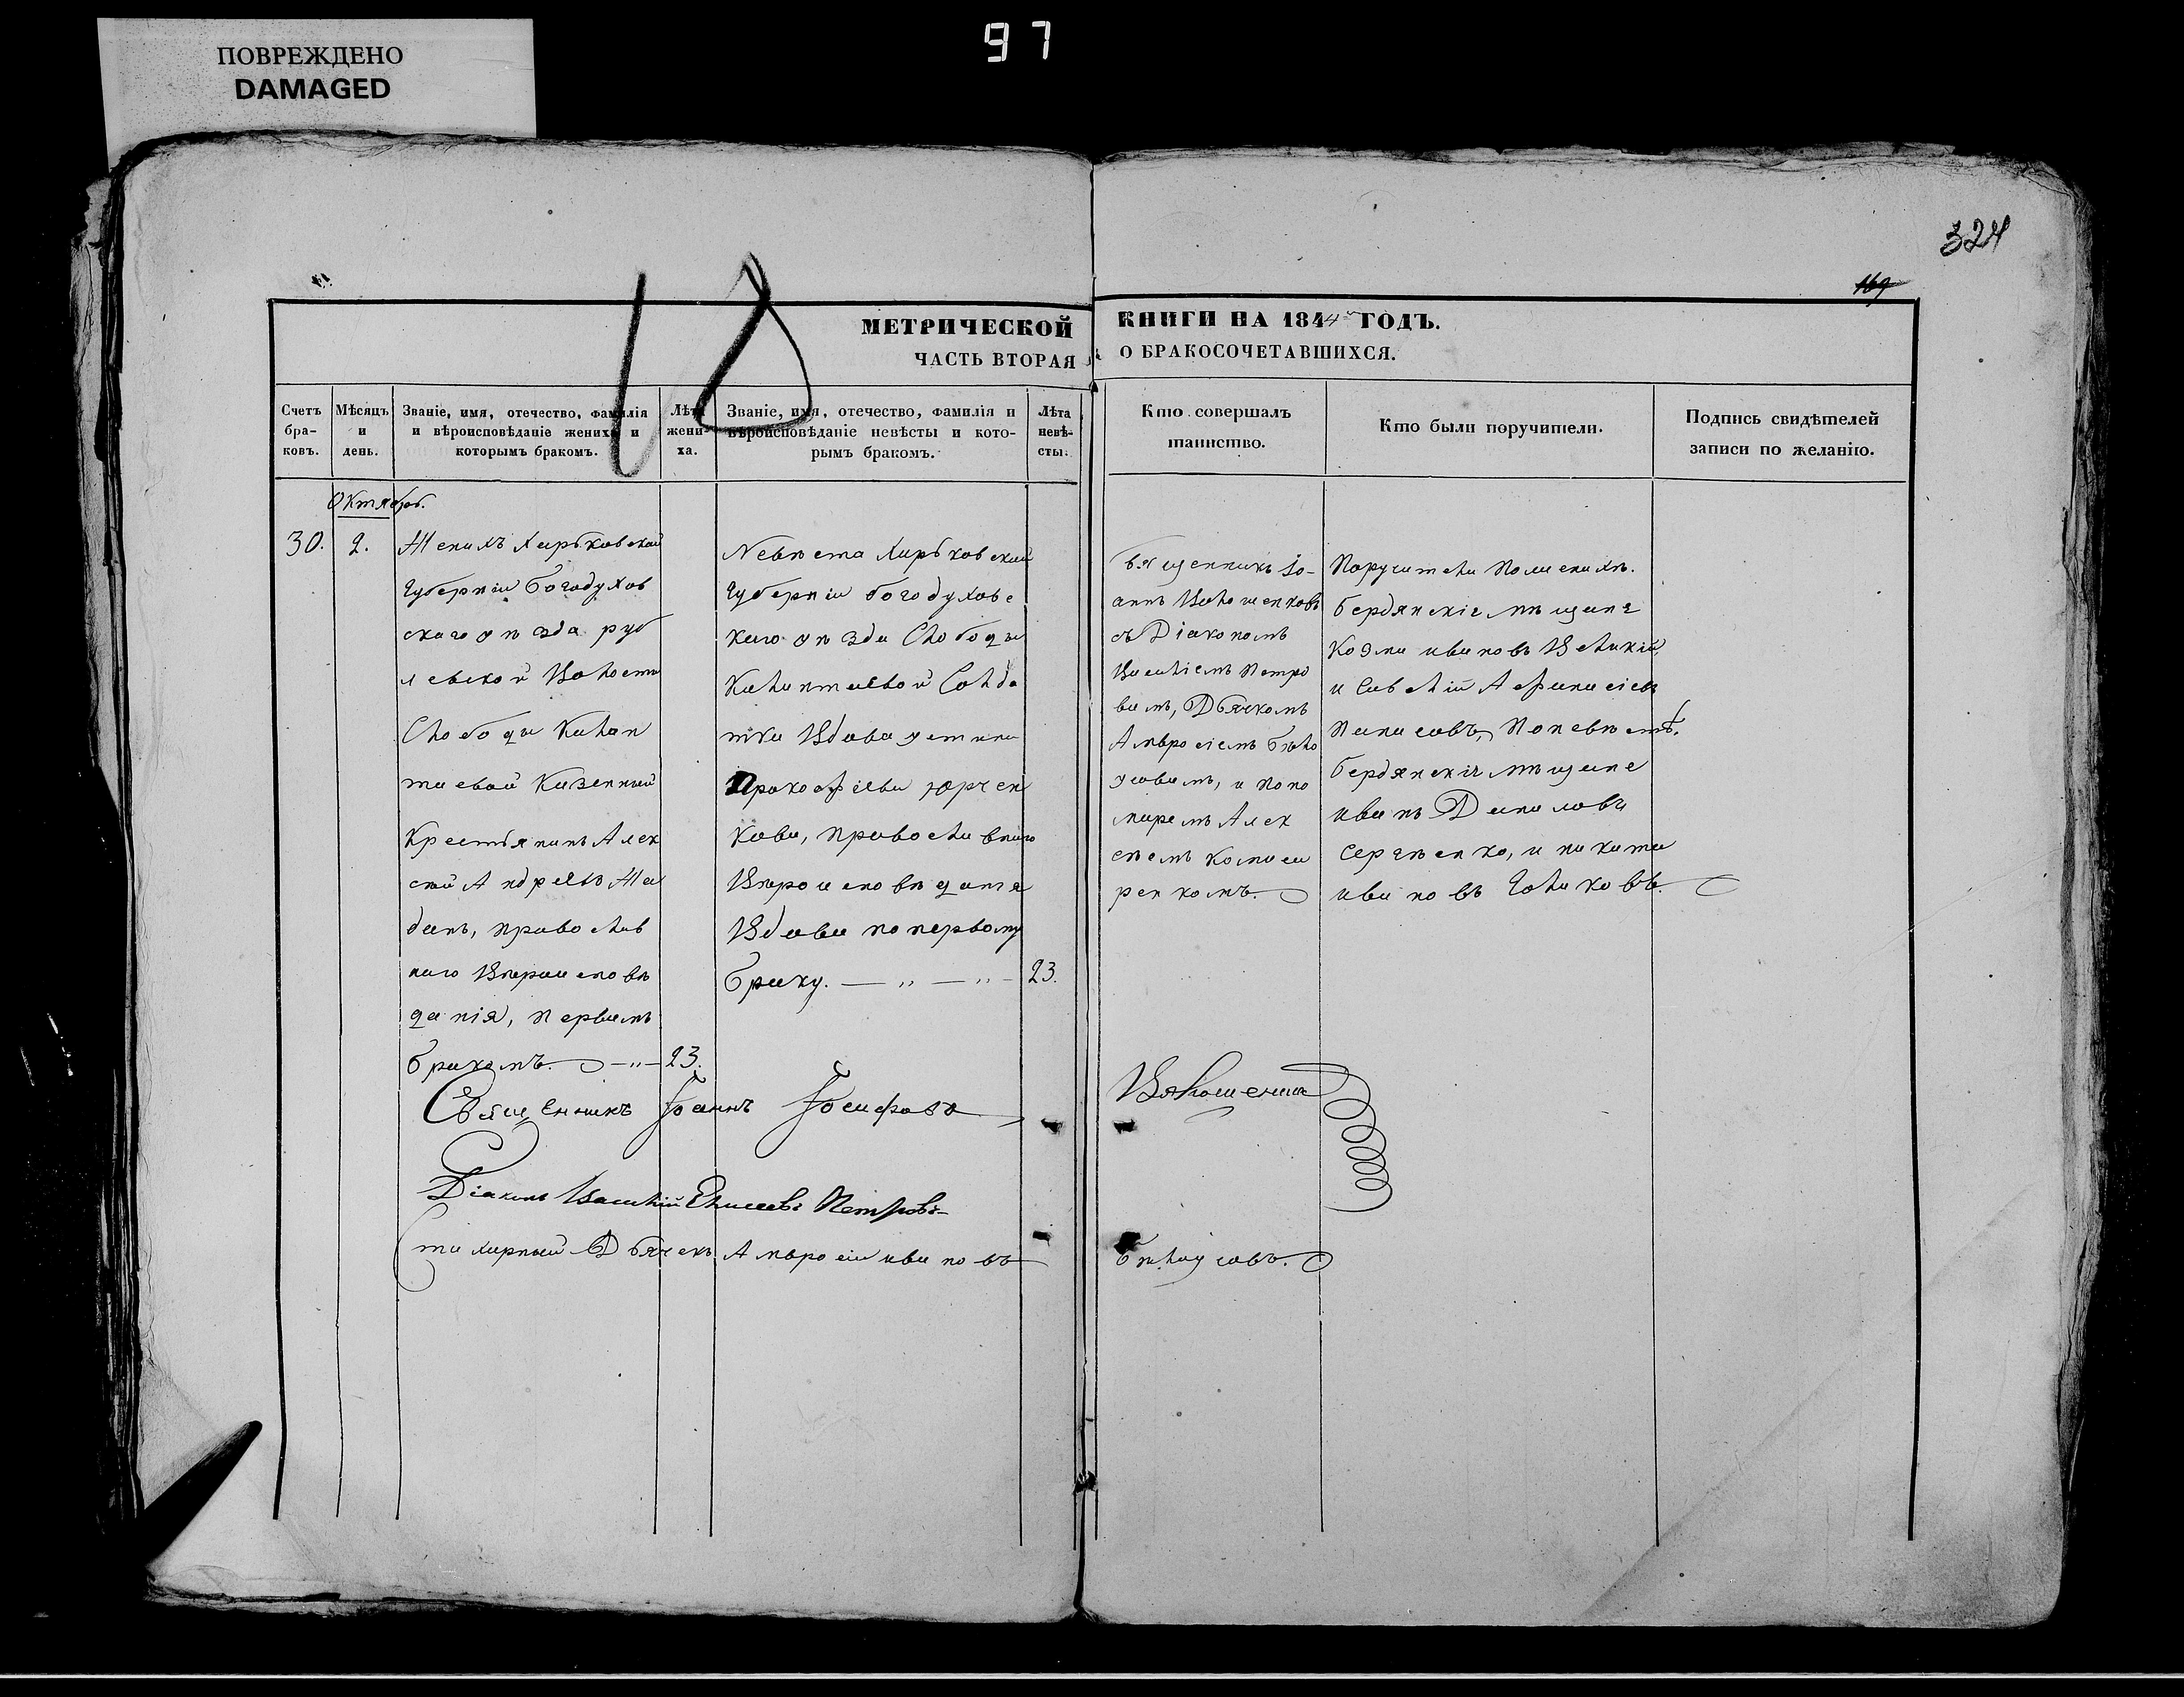 ПОВРЕЖДЕНО
DAMAGED
97
324
169
МЕТРИЧЕСКОЙ КНИГИ НА 1844й ГОДЪ.
ЧАСТЬ ВТОРАЯ О БРАКОСОЧЕТАВШИХСЯ.
Счетъ
бра-
ковъ.
Мѣсяцъ
и
день.
Званіе, имя, отечество, фамилія
и вѣроисповѣданіе жениха и
которымъ бракомъ.
Лѣта
жени-
ха.
Званіе, имя, отечество, фамилія и
вѣроисповѣданіе невѣсты и кото-
рымъ бракомъ.
Лѣта
невѣ-
сты.
Кто совершалъ
таинство.
Кто были поручители.
Подпись свидѣтелей
записи по желанію.
Октябрь.
30.
2.
Женихъ Харьковской
Губерніи богодухов
скаго уѣзда руб
левской Волости
Слободы Калан
таевой Казенный
Крестьянинъ Алек
сѣй Андреевъ Жа
данъ, православ
наго Вѣроисповѣ
данія, первымъ
бракомъ. — „ —
23.
Невѣста Харьковской
Губерніи богодуховс
каго уѣзда Слободы
Калантаевой Солда
тка Вдова устина
Прокофіева юрчен
кова, православнаго
Вѣроисповѣданія
Вдова по первому
браку. — „ — „ —
23.
Священникъ Іо-
аннъ Волошенковъ
съ Діакономъ
Василіемъ Петро
вымъ, Дьячкомъ
Амвросіемъ бѣло
усовымъ, и поно
маремъ Алек
сѣемъ Комиса
ренкомъ.
Поручители По женихѣ.
бердянскіе мѣщане
Козма ивановъ Великій
и Савелій Афанасіевъ
Панасовъ, По невѣстѣ.
бердянскіе мѣщане
иванъ Даниловъ
Сергѣенко, и никита
ивановъ Голиковъ.
Священникъ Іоаннъ Іосифовъ Волошенко
Діаконъ Василій Елисеевъ Петровъ
тихирный Дьячекъ Амвросій ивановъ бѣлоусовъ.